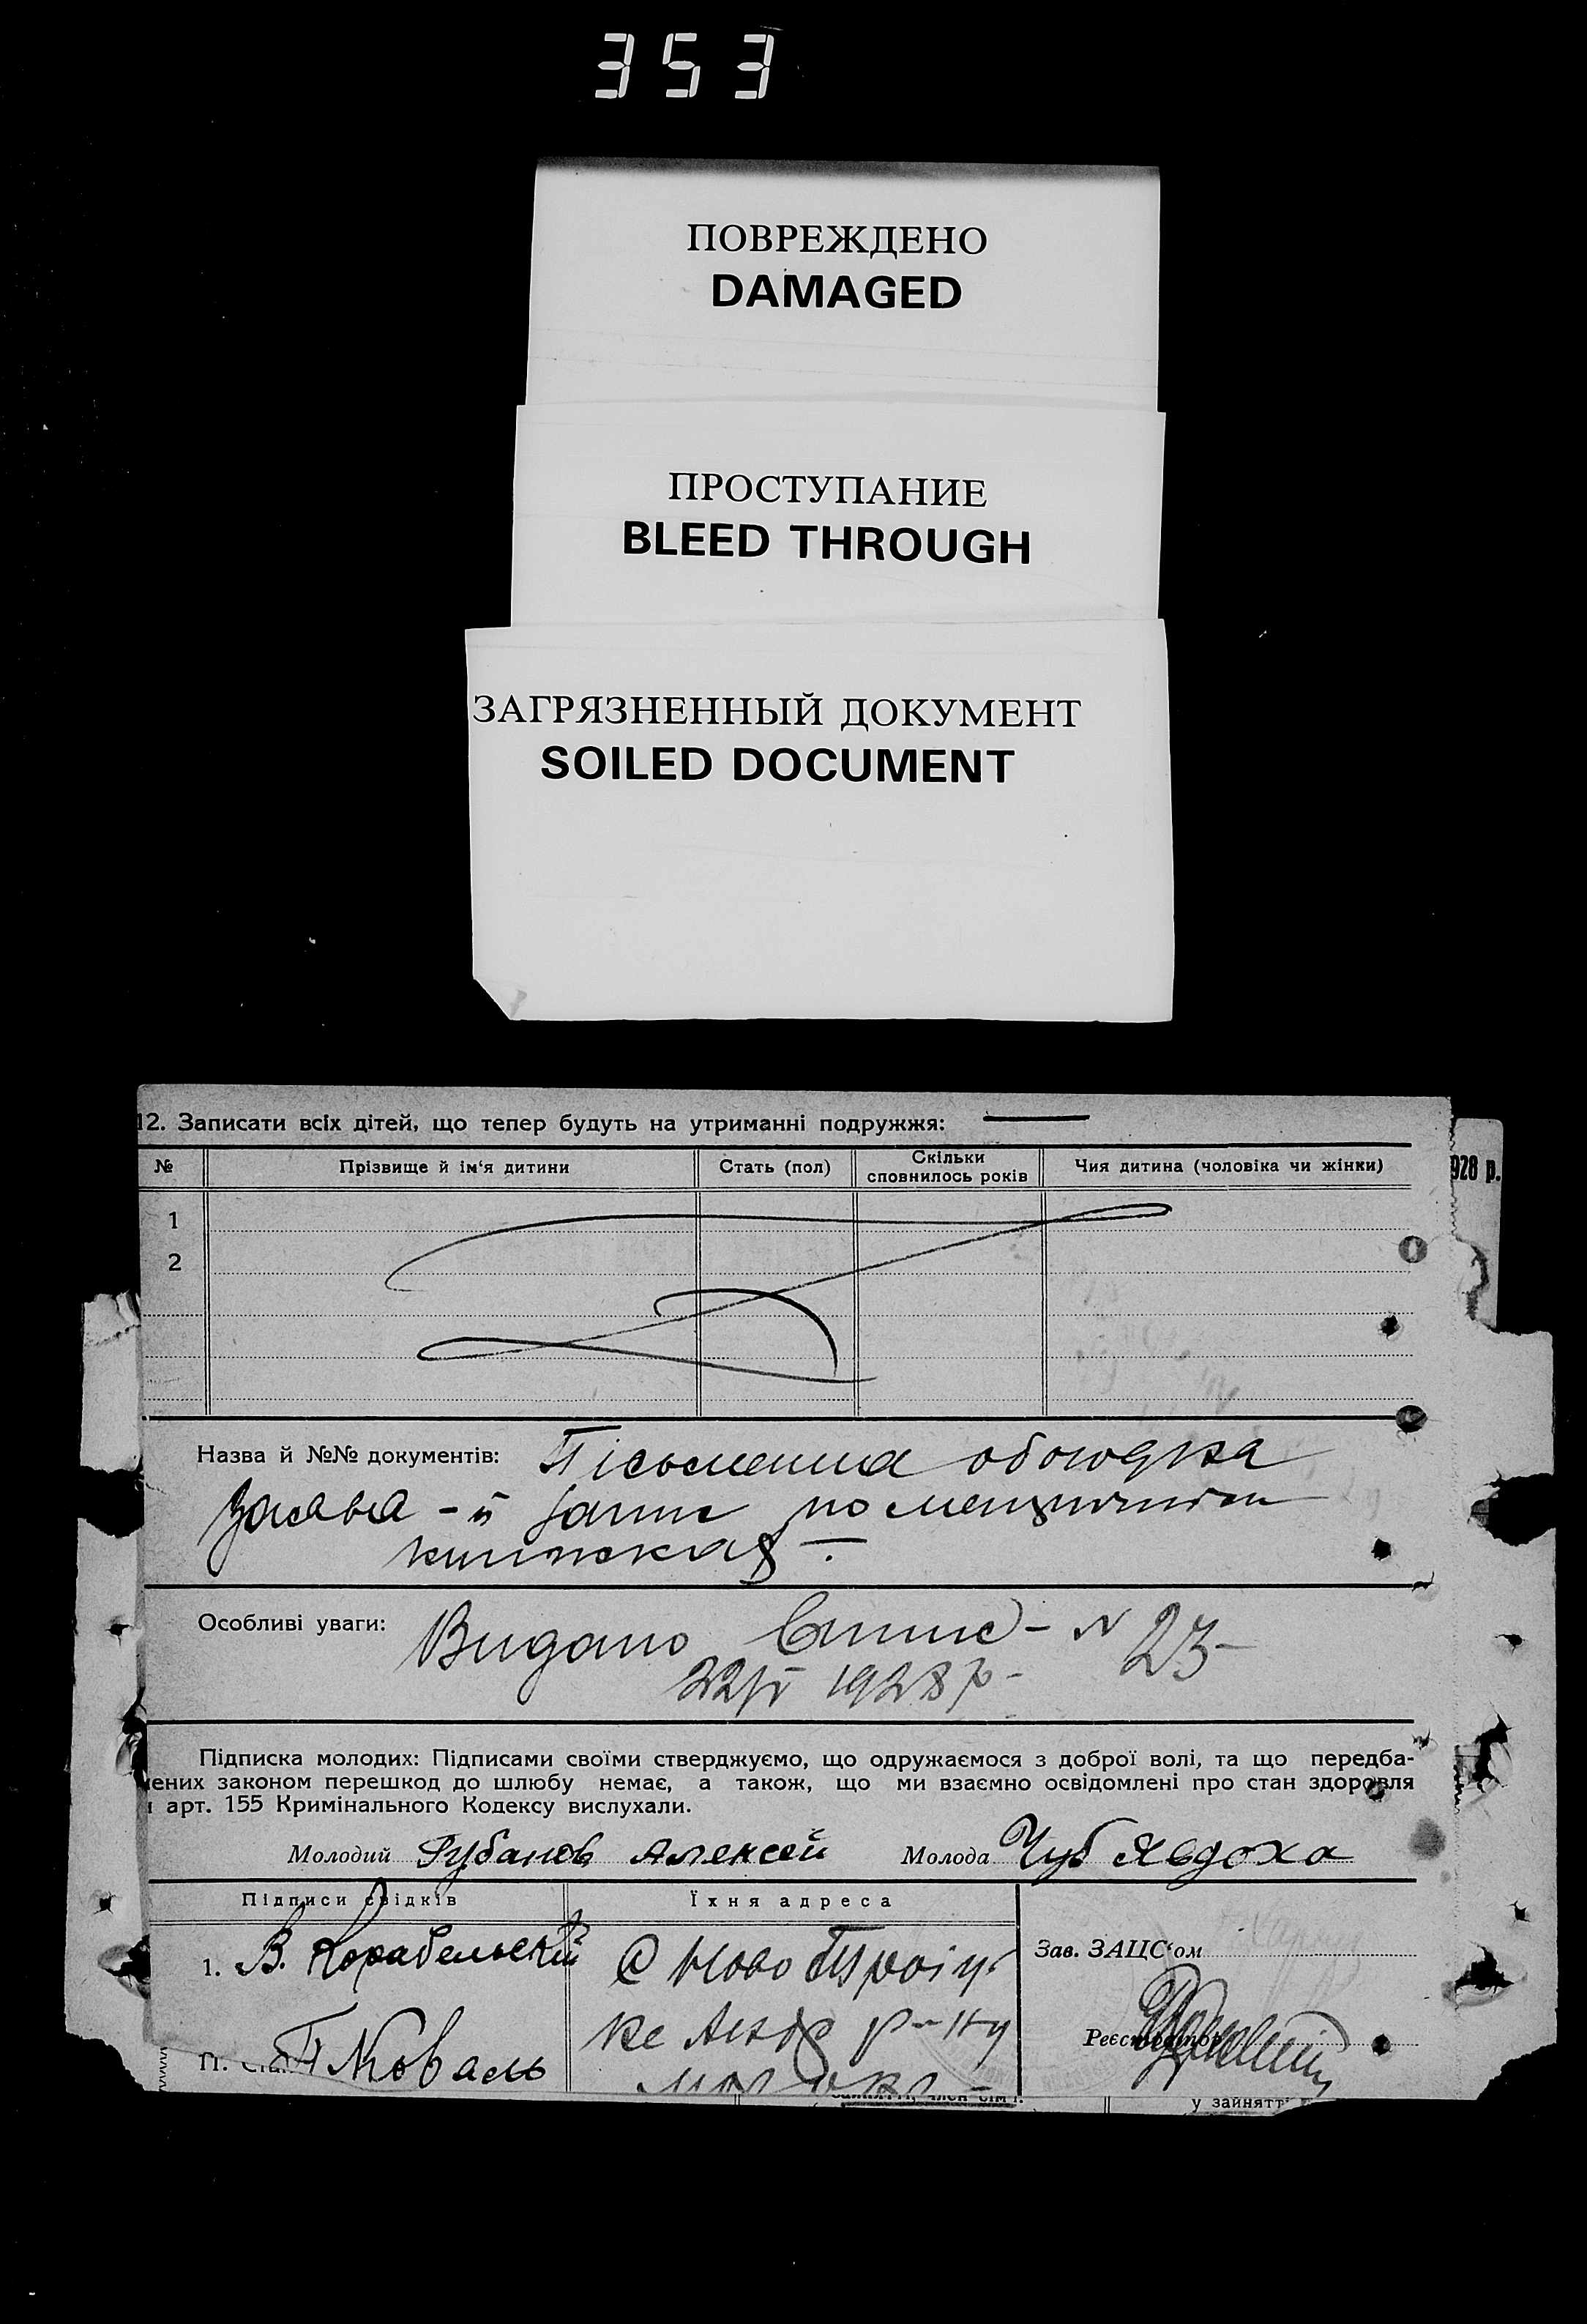 353
ПОВРЕЖДЕНО
DAMAGED
ПРОСТУПАНИЕ
BLEED THROUGH
ЗАГРЯЗНЕННЫЙ ДОКУМЕНТ
SOILED DOCUMENT
12. Записати всіх дітей, що тепер будуть на утриманні подружжя: —
№ Прізвище й ім'я дитини Стать (пол) Скільки сповнилось років Чия дитина (чоловіка чи жінки)
928 р.
1
2
Назва й №№ документів: Пісьменна обоюдна
заява - й запис по
книжках - .
Особливі уваги: Видано Випис - N 23 -
22/V 1928 р -
Підписка молодих: Підписами своїми стверджуємо, що одружаємося з доброї волі, та що передба-
чених законом перешкод до шлюбу немає, а також, що ми взаємно освідомлені про стан здоровля
і арт. 155 Кримінального Кодексу вислухали.
Молодий Рубанов Алексей Молода Чуб Явдоха
Підписи свідків Їхня адреса
1. В. Корабельский С Ново Троіц Зав. ЗАЦС'ом
ке р-ну Реєстратор
П. Коваль
у зайнятті